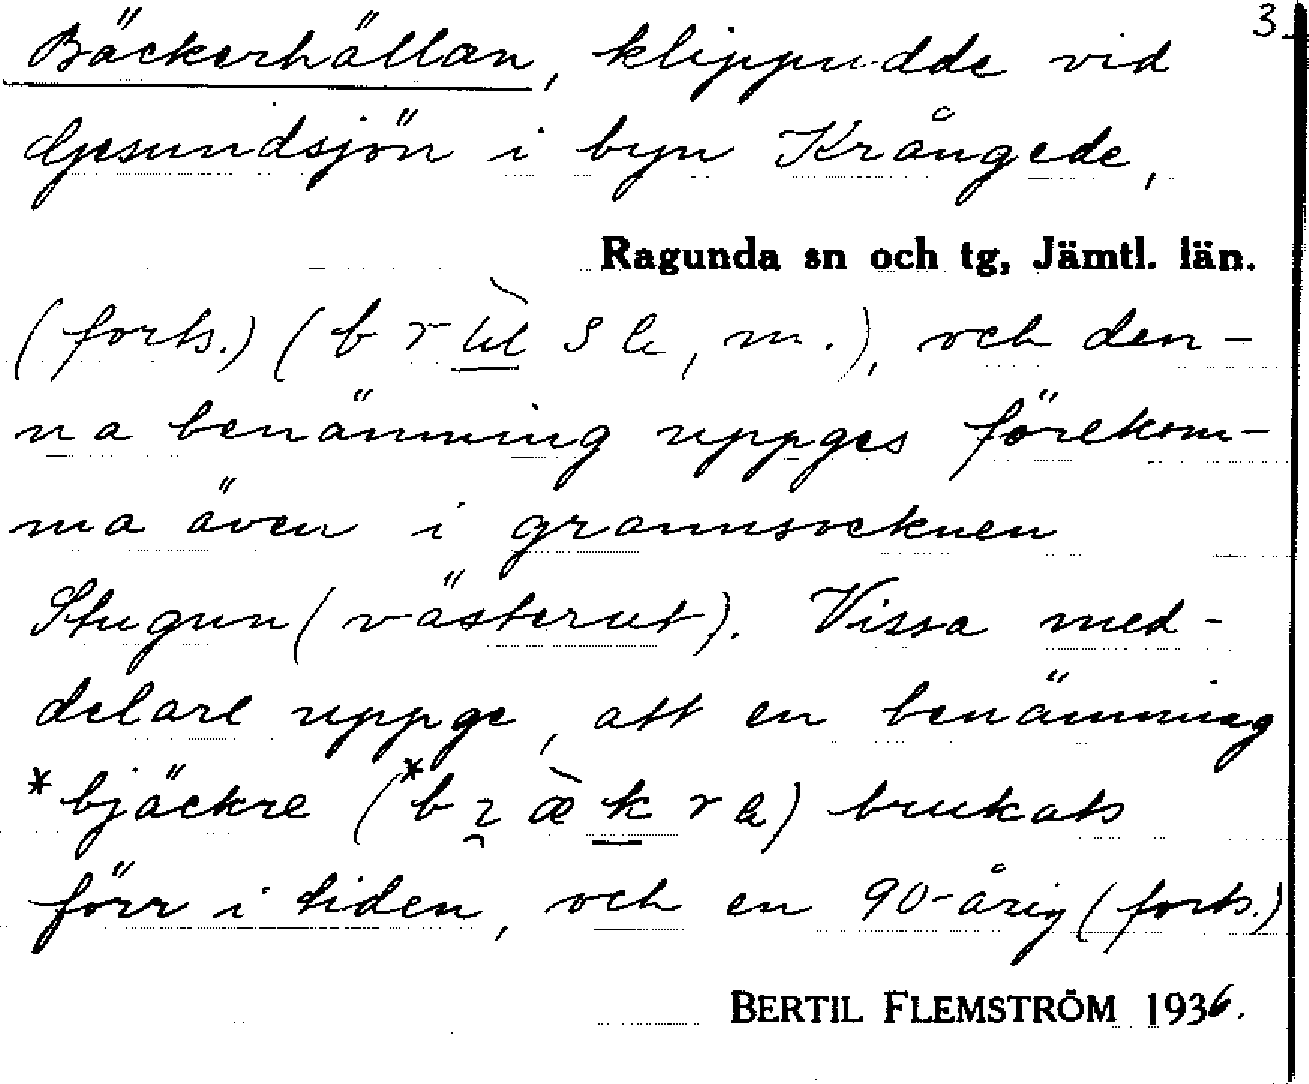 3.
Bäckerhällan, klippudde vid
Gesundsjön i byn Krångede,
Ragunda sn och tg, Jämtl. län.
(forts.) (b r s , m.), och den-
na benämning uppges förekom-
ma även i grannsocknen
Stugun (västerut). Vissa med-
delare uppge, att en benämning
*bjäckre (*b æ̀ k r ) brukats
förr i tiden, och en 90-årig (forts.)
BERTIL FLEMSTRÖM 1936.